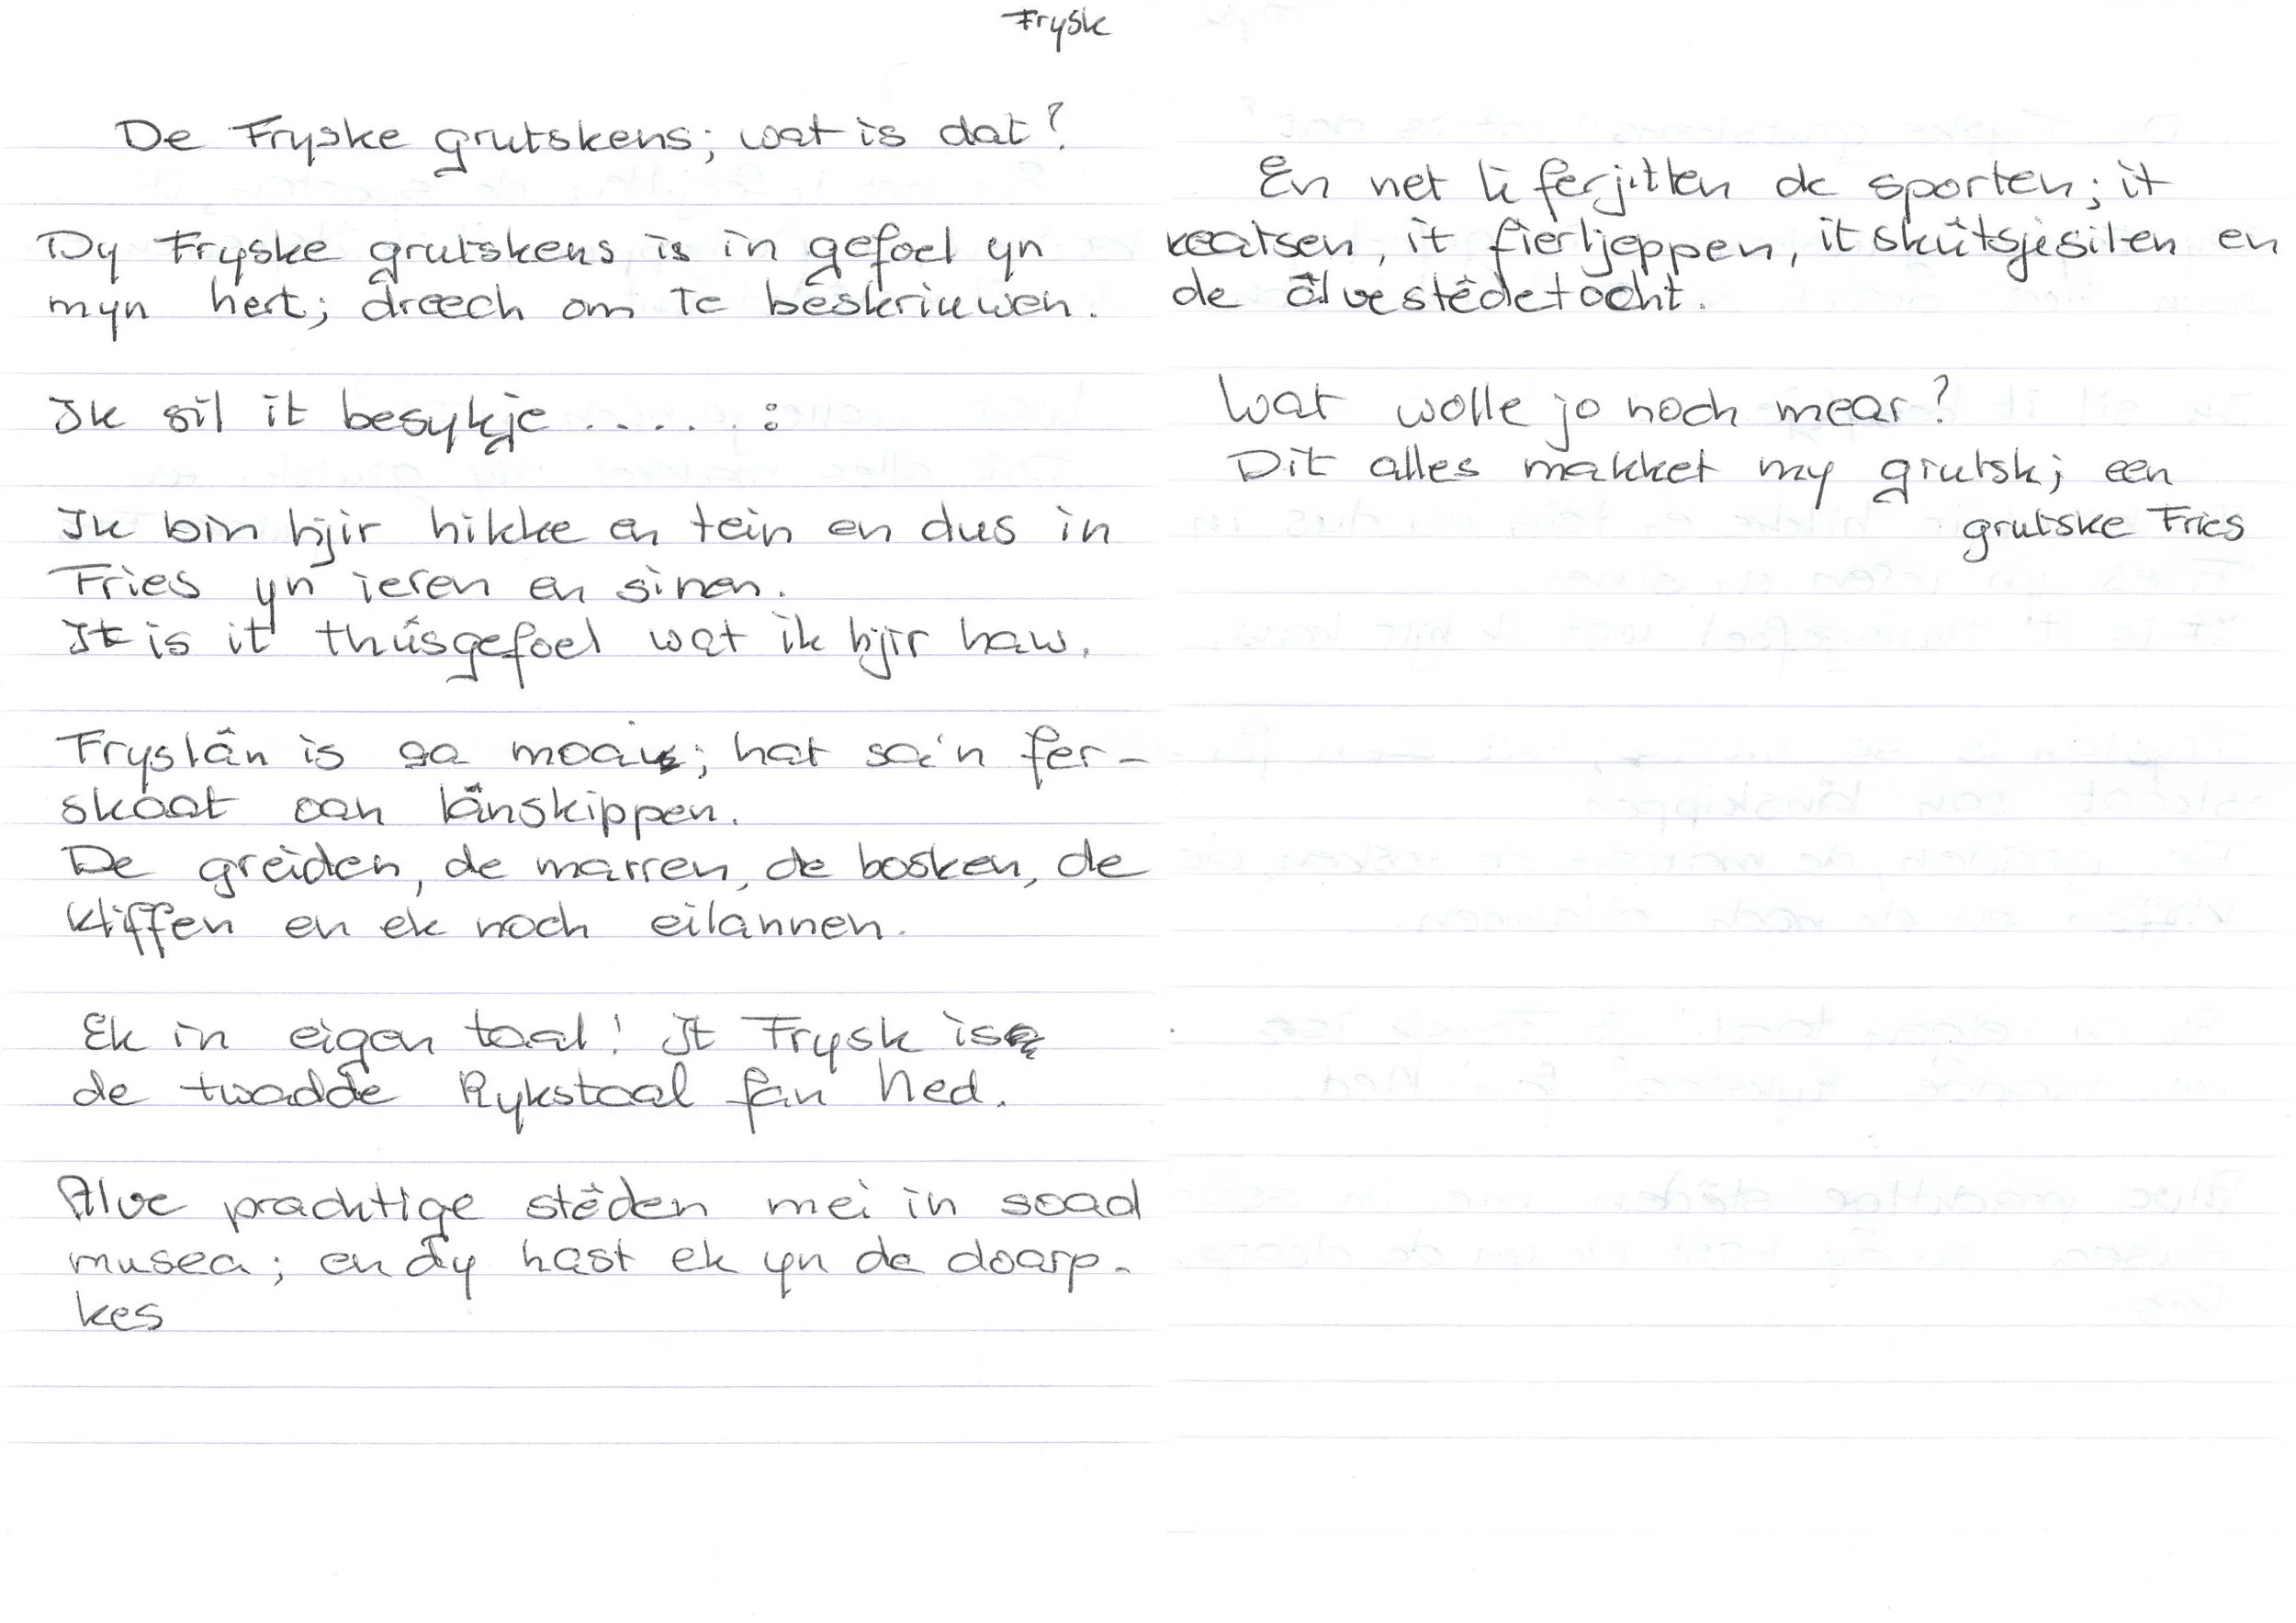 Frysk
De Fryske grutskens; wat is dat?
Dy Fryske grutskens is in gefoel yn
myn hert; dreech om te beskriuwen.
Ik sil it besykje .....:
Ik bin hjir hikke en tein en dus in
Fries yn ieren en sinen.
It is it thúsgefoel wat ik hjir haw.
Fryslân is sa moai; hat sa'n fer-
skaat oan lânskippen.
De greiden, de marren, de bosken, de
kliffen en ek noch eilannen.
Ek in eigen taal! It Frysk is
de twadde Rykstaal fan Ned.
Alve prachtige stêden mei in soad
musea; en dy hast ek yn de doarp-
kes
En net te ferjitten de sporten; it
keatsen, it fierljeppen, it skûtsjesilen en
de âlvestêdetocht.
Wat wolle jo noch mear?
Dit alles makket my grutsk; een
grutske Fries